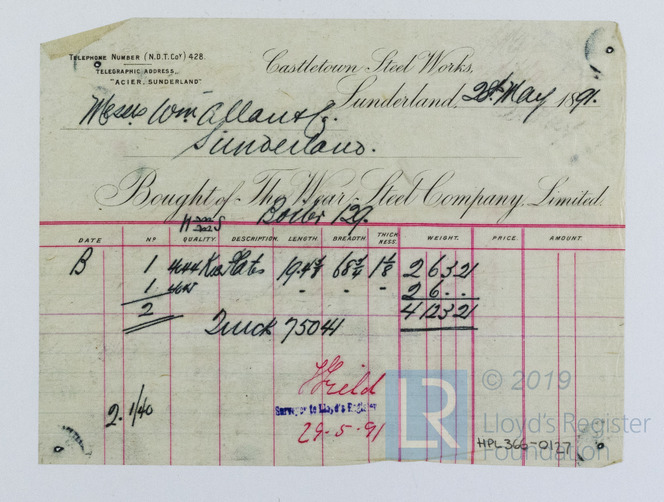 TELEPHONE NUMBER (N.D.T.COY) 428.
TELEGRAPHIC ADDRESS,
"ACIER, SUNDERLAND"
Castletown Steel Works,
Sunderland, 28th May 1891.
Messrs Wm Allan & Co.
Sunderland.
Bought of The Wear Steel Company, Limited.
Boiler 129.
DATE Nº QUALITY. DESCRIPTION. LENGTH. BREADTH. THICKNESS. WEIGHT. PRICE. AMOUNT.
B 1 Plates 1 1/8 2 6 3 21
1 - - - 2 6 . .
2 4 12 3 21
Truck 75041
Field
Surveyor to Lloyd's Register
29-5-91
2. 1/40
LR
© 2019
Lloyd's Register
Foundation
HPL366-0127